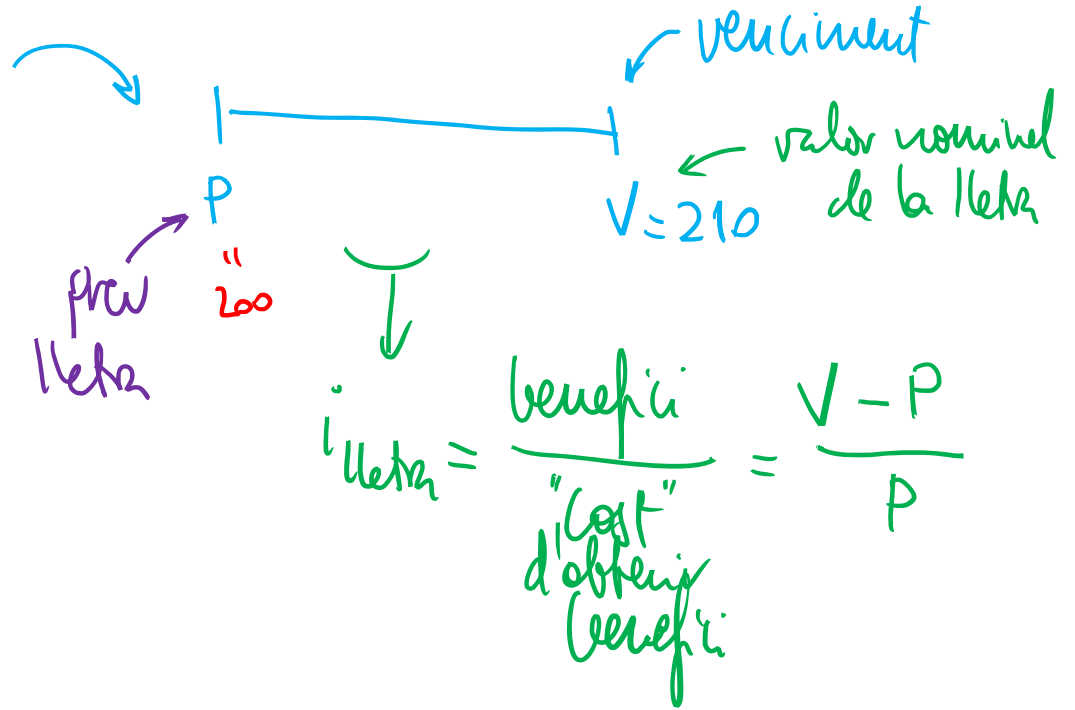 venciment
valor nominal
de la lletra
P
V = 210
"
200
preu
lletra
i lletra = benefici / "cost" d'obtenir benefici = V - P / P